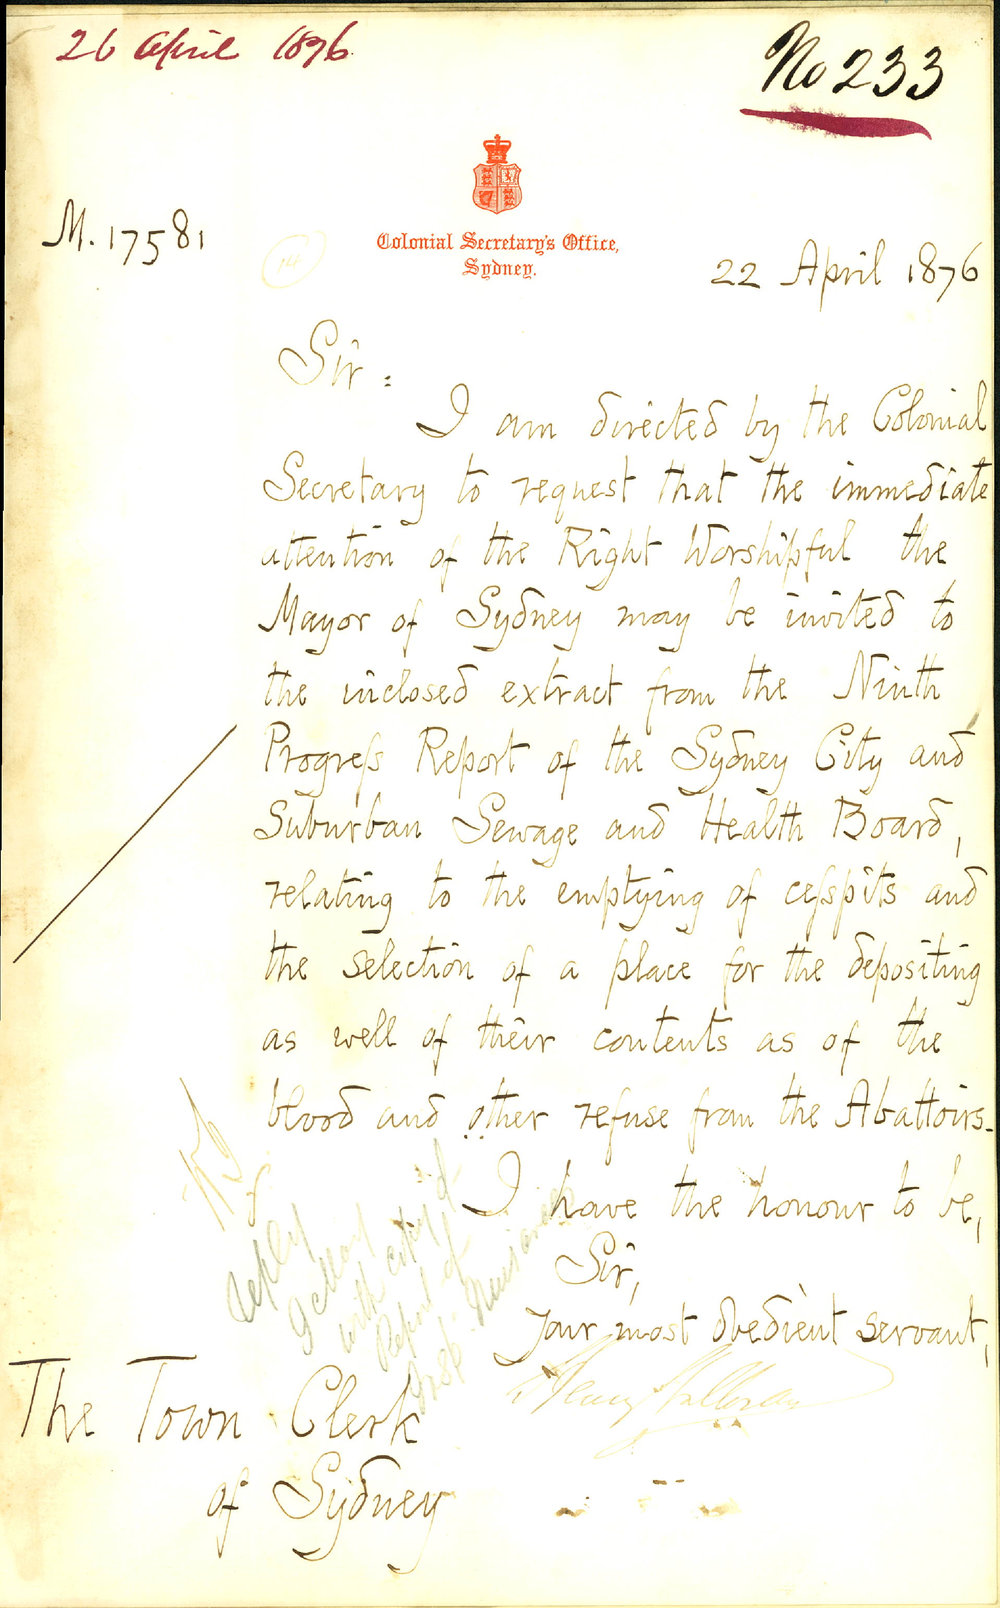 26 April 1876
No 233
M. 17581
Colonial Secretary's Office,
Sydney.
22 April 1876
Sir:
I am directed by the Colonial
Secretary to request that the immediate
attention of the Right Worshipful the
Mayor of Sydney may be invited to
the inclosed extract from the Ninth
Progress Report of the Sydney City and
Suburban Sewage and Health Board,
relating to the emptying of cesspits and
the selection of a place for the depositing
as well of their contents as of the
blood and other refuse from the Abattoirs.
I have the honour to be,
Sir,
Your most obedient servant,
Henry Halloran
The Town Clerk
of Sydney
reply
9 May
with copy of
Report of
Nuisances